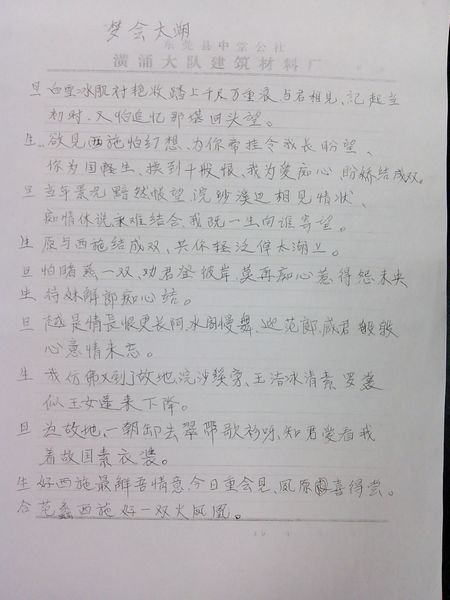 梦会太湖
东莞县中堂公社
潢涌大队建筑材料厂
旦 白罗冰肌衬艳妆踏上千尺万重浪与君相见、記起当
初事.又怕追忆那堪回头望。
生、欲見西施怕幻想、为你牵挂令我長盼望、
你为国軽生、换到千般恨、我为爱痴心盼娇结成双。
旦 当年景况黯然帳望、浣纱溪边相見情状、
痴情休说永难结合、我既一生向谁寄望。
生 愿与西施结成双、共你轻泛伴太湖上。
旦 怕睹燕一双、劝君登彼岸、莫再痴心惹得怨未央
生 待妹解郎痴心结。
旦 越是情長恨更长阿、水阁慢舞、迎范郎、感君般般
心意情未忘。
生 我仿佛又到了故地、浣沙溪旁、玉洁冰清素罗裳
似玉女蓬来下降。
旦 为故地、一朝卸去翠帶歌衫呀、知君爱看我
着故国素衣裳。
生 好西施最解吾情意、今日重会見、凤愿喜得尝。
合 范蠡西施好一双火凤凰。